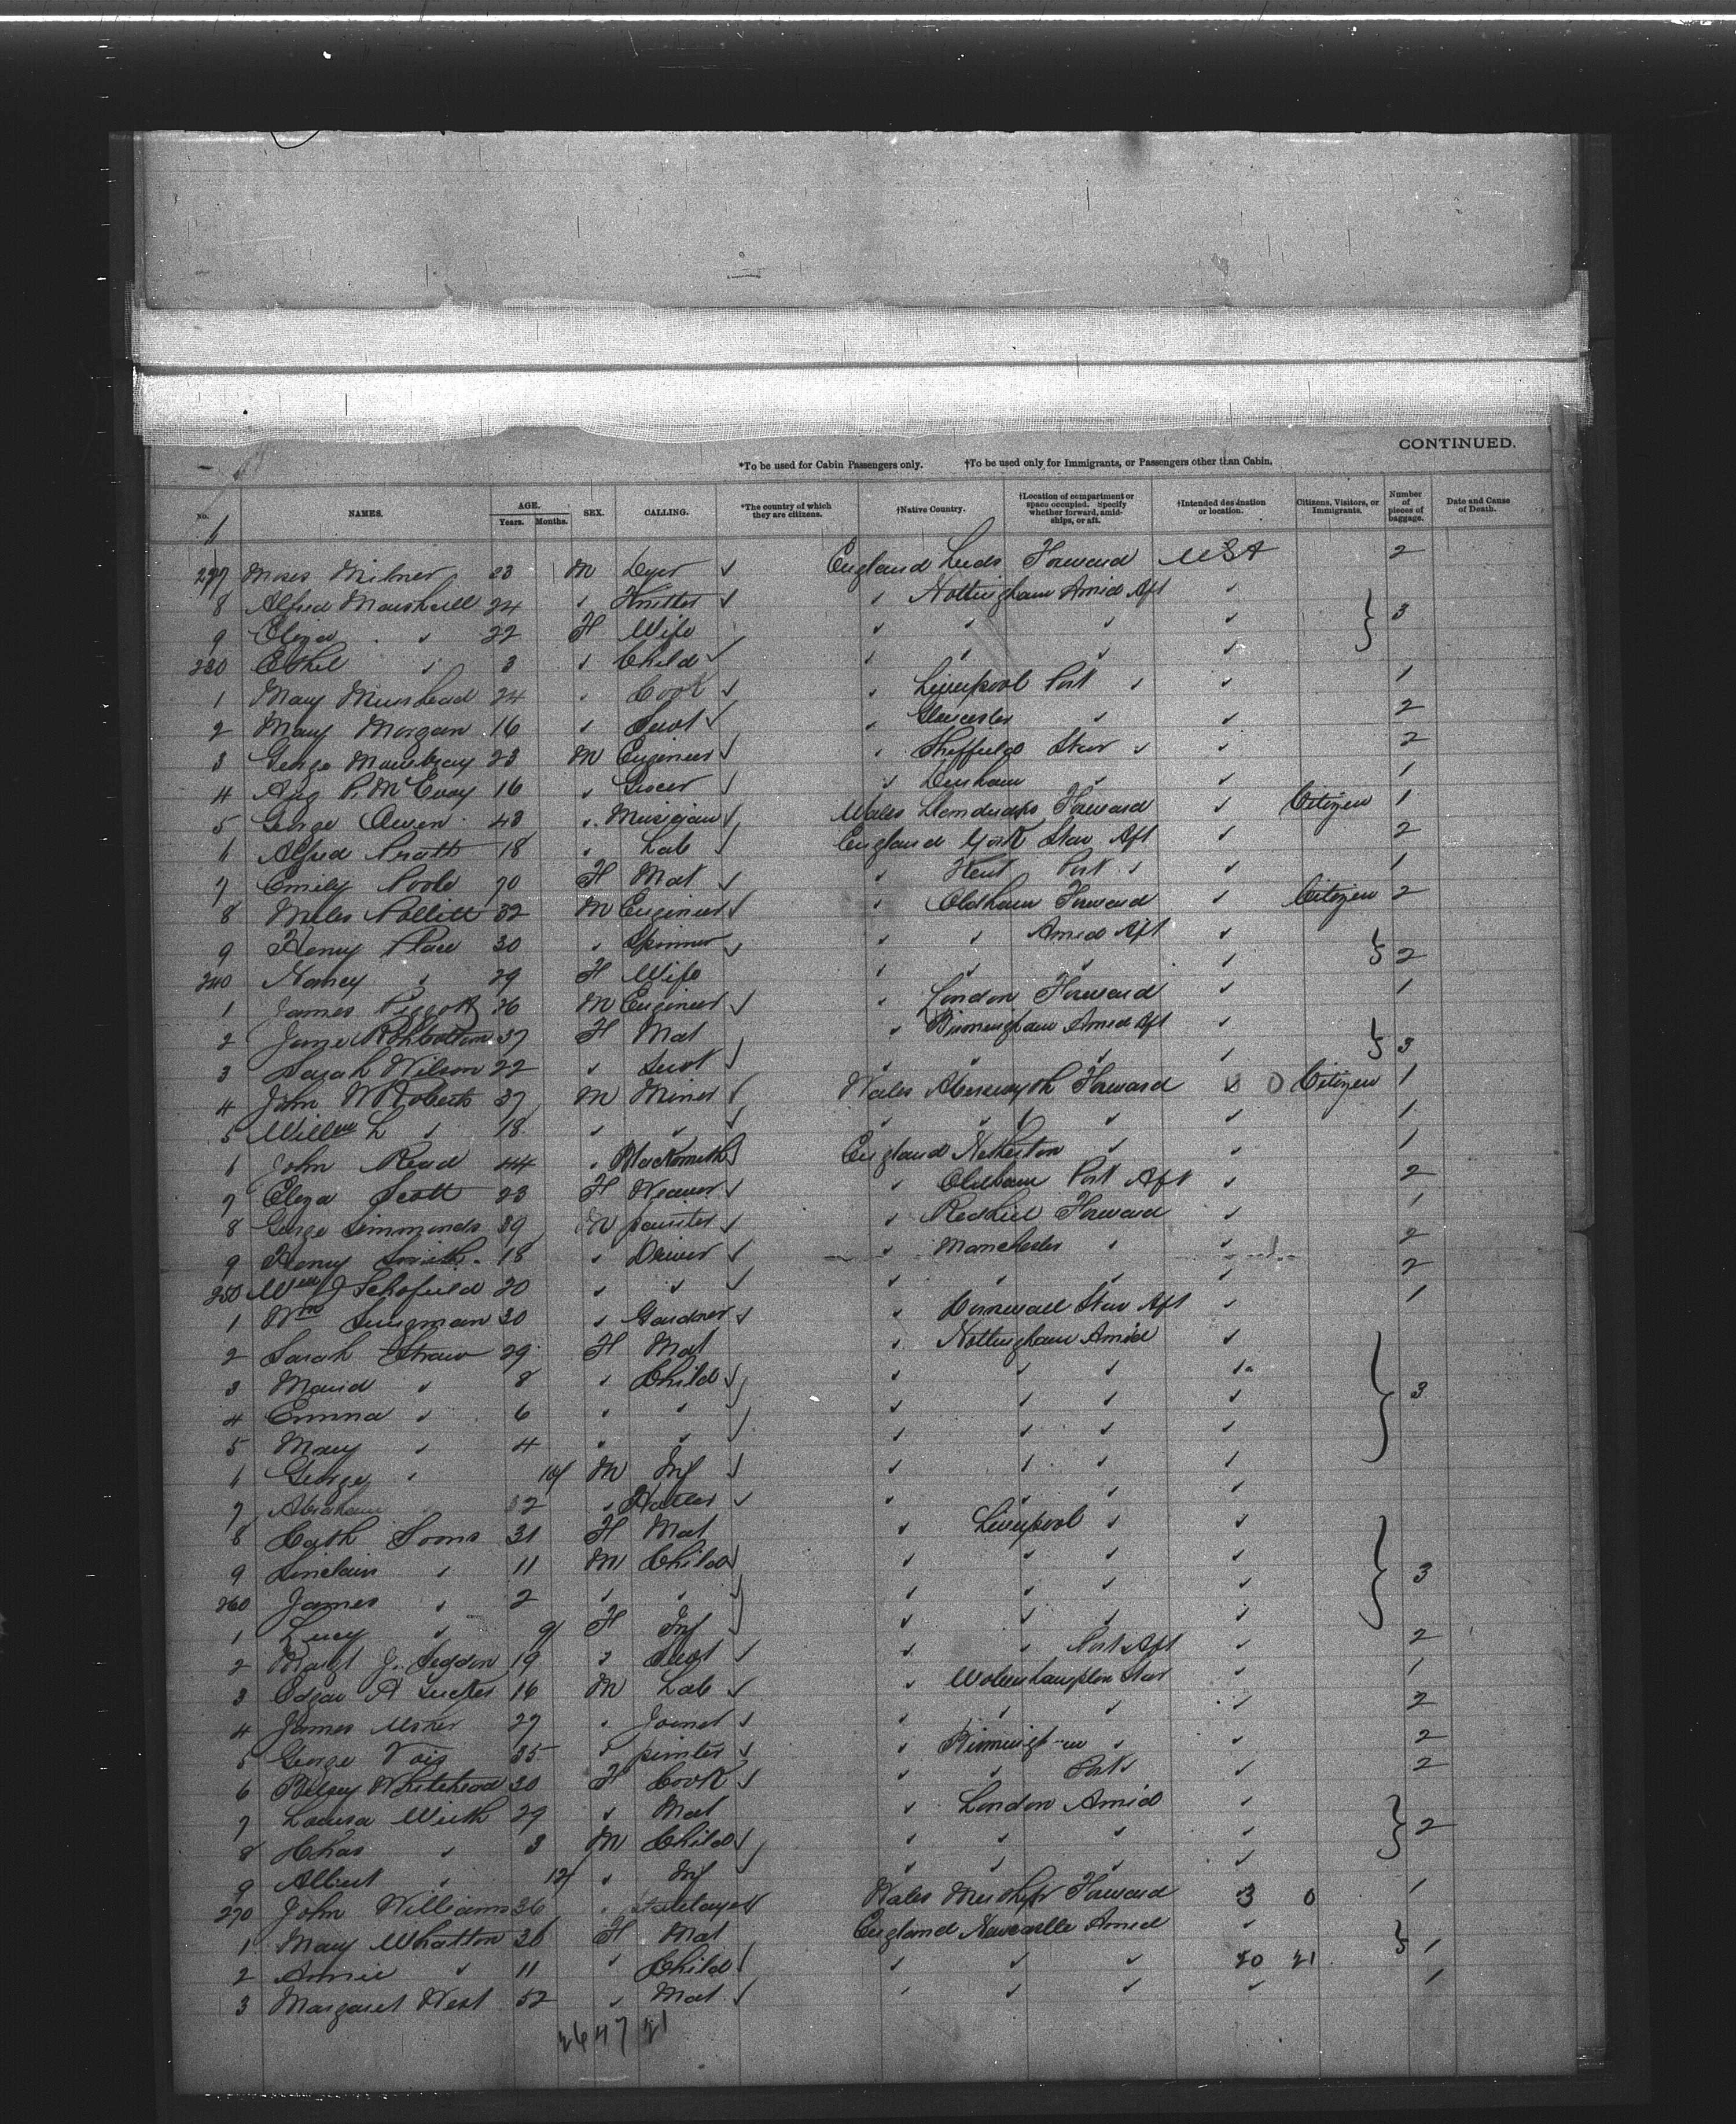 CONTINUED.
*To be used for Cabin Passengers only. †To be used only for Immigrants, or Passengers other than Cabin.
No. NAMES. AGE. Years. Months. SEX. CALLING. *The country of which they are citizens. †Native Country. †Location of compartment or space occupied. Specify whether forward, amidships, or aft. †Intended destination or location. Citizens, Visitors, or Immigrants. Number of pieces of baggage. Date and Cause of Death.
227 Moses Milner 23 M Dyer ✓ England Leeds Forward USA 2
8 Alfred Marshall 24 " Knitter ✓ " Nottingham Amid Aft "
9 Eliza " 22 F Wife " " " " 3
230 Ethel " 3 " Child ✓ " " " "
1 Mary Muirhead 24 " Cook ✓ " Liverpool Port " " 1
2 Mary Morgan 16 " Servt ✓ " Gloucester " " 2
3 George 23 M Engineer ✓ " Sheffield Star " " 2
4 Aug P. McEvoy 16 " Grocer ✓ " Durham " " 1
5 George Owen 43 " Musician ✓ Wales Forward " Citizen 1
6 Alfred Pratt 18 " Lab ✓ England York Star Aft " 2
7 Emily Poole 70 F Mat ✓ " Kent Port " " 1
8 Miles Pollitt 32 M Engineer ✓ " Oldham Forward " Citizen 2
9 Henry Place 30 " Spinner ✓ " " Amid Aft "
240 Nancy " 29 F Wife " " " " 2
1 James Piggott 26 M Engineer ✓ " London Forward " 1
2 Jane 37 F Mat " Birmingham Amid Aft "
3 Sarah Wilson 22 " Servt ✓ " " " " 3
4 John W Roberts 37 M Miner ✓ Wales Forward " 0 Citizen 1
5 Willm L " 18 " " ✓ " " " " 1
6 John Read 44 " Blacksmith ✓ England Netherton " " 1
7 Eliza Scott 23 F Weaver ✓ " Oldham Port Aft " 2
8 George Simmonds 39 M painter ✓ " Redhill Forward " 1
9 Henry Smith 18 " Driver ✓ " Manchester " " 2
250 Wm J Schofield 20 " " ✓ " " " " 2
1 Wm 30 " Gardner ✓ " Cornwall Star Aft " 1
2 Sarah Straw 29 F Mat " Nottingham Amid "
3 Maud " 8 " Child ✓ " " " "
4 Emma " 6 " " ✓ " " " " 3
5 Mary " 4 " " ✓ " " " "
6 George " 10/ M Inf ✓ " " " "
7 Abraham " 32 " ✓ " " " "
8 Cath Soons 31 F Mat " Liverpool " "
9 Sinclair " 11 M Child ✓ " " " "
260 James " 2 " " ✓ " " " " 3
1 Lucy " 9/ F Inf ✓ " " " "
2 Margt J. Seddon 19 " Servt ✓ " " Port Aft " 2
3 Edgar A 16 M Lab ✓ " Wolverhampton Star " 1
4 James 27 " Joiner ✓ " " " " 2
5 George 35 " printer ✓ " Birmingham " " 2
6 Betsy Whitehead 30 F Cook ✓ " " Port " 2
7 Louisa Wirth 29 " Mat " London Amid "
8 Chas " 3 M Child ✓ " " " " 2
9 Albert " 12/ " Inf ✓ " " " "
270 John Williams 36 " ✓ Wales Forward 3 0 1
1 Mary Whatton 36 F Mat England Newcastle Amid "
2 Annie " 11 " Child ✓ " " " 20 21 1
3 Margaret West 52 " Mat ✓ " " " " 1
2647 21